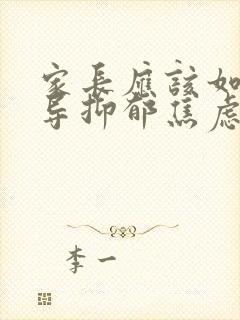 家長應該如
导抑郁焦虑
李一